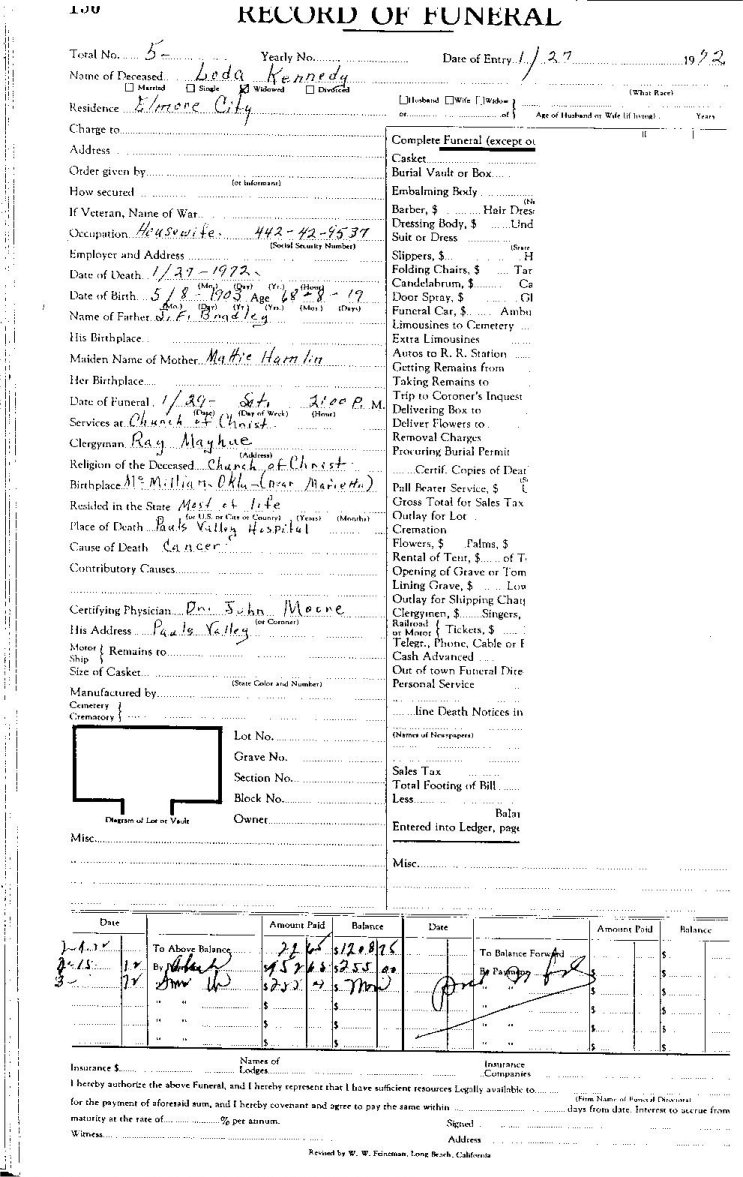 RECORD OF FUNERAL
Total No. 5- Yearly No. Date of Entry 1/27 1972
Name of Deceased Leda Kennedy
Married Single Widowed Divorced
(What Race)
Residence Elmore City
Husband Wife Widow
or of Age of Husband or Wife (if living) Years
Charge to
Complete Funeral (except ou
Address
Casket
Order given by
(or Informant)
Burial Vault or Box
How secured
Embalming Body
If Veteran, Name of War
Barber, $ Hair Dres
Occupation Housewife. 442-42-9537
(Social Security Number)
Dressing Body, $ Und
Suit or Dress
Employer and Address
Slippers, $ H
Date of Death 1/27-1972
(Mo.) (Day) (Yr.) (Hour)
Folding Chairs, $ Tar
Candelabrum, $ Ca
Date of Birth 5/8-1903 Age 68-8-19
(Mo.) (Day) (Yr) (Yrs.) (Mos) (Days)
Door Spray, $ Gl
Name of Father J. F. Bradley
Funeral Car, $ Ambu
Limousines to Cemetery
His Birthplace
Extra Limousines
Maiden Name of Mother Mattie Hamlin
Autos to R. R. Station
Getting Remains from
Her Birthplace
Taking Remains to
Date of Funeral 1/29- Sat. 2:00 P. M.
(Date) (Day of Week) (Hour)
Trip to Coroner's Inquest
Delivering Box to
Services at Church of Christ
Deliver Flowers to
Clergyman Ray Mayhue
(Address)
Removal Charges
Procuring Burial Permit
Religion of the Deceased Church of Christ
Certif. Copies of Deat
Birthplace McMillian, Okla-(near Marietta)
Pall Bearer Service, $
Resided in the State Most of life
(or U.S. or City or County) (Years) (Months)
Gross Total for Sales Tax
Outlay for Lot
Place of Death Pauls Valley Hospital
Cremation
Cause of Death Cancer
Flowers, $ Palms, $
Rental of Tent, $ of T
Contributory Causes
Opening of Grave or Tom
Lining Grave, $ Low
Outlay for Shipping Charg
Certifying Physician Dr. John Moore
(or Coroner)
Clergymen, $ Singers,
His Address Pauls Valley
Railroad or Motor Tickets, $
Telegr., Phone, Cable or
Motor Ship Remains to
Cash Advanced
Size of Casket
(State Color and Number)
Out of town Funeral Dire
Manufactured by
Personal Service
Cemetery
Crematory
line Death Notices in
Lot No.
(Names of Newspapers)
Grave No.
Section No.
Sales Tax
Total Footing of Bill
Block No.
Less
Diagram of Lot or Vault
Owner
Balan
Entered into Ledger, page
Misc.
Misc.
Date Amount Paid Balance Date Amount Paid Balance
To Above Balance $1208 75
To Balance Forward $
By
$255 00
By Payment $
Insurance $ Names of Lodges Insurance Companies
I hereby authorize the above Funeral, and I hereby represent that I have sufficient resources Legally available to
(Firm Name of Funeral Directors)
for the payment of aforesaid sum, and I hereby covenant and agree to pay the same within days from date. Interest to accrue from
maturity at the rate of % per annum. Signed
Witness Address
Revised by W. W. Feineman, Long Beach, California